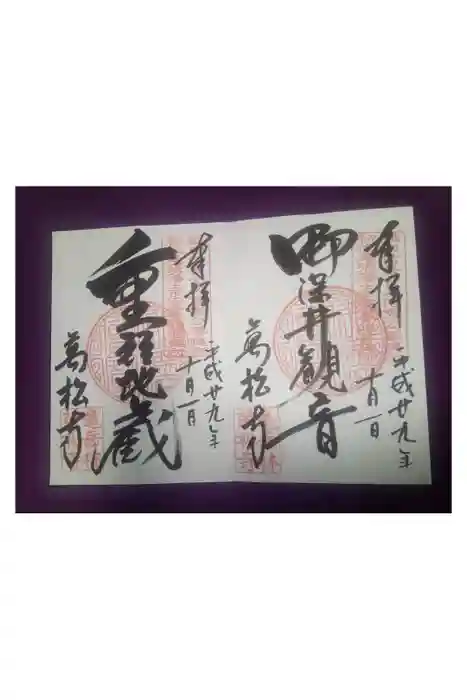 奉拝
平成廿九年
十月一日
御深井観音
萬松寺
奉拝
平成廿九年
十月一日
重軽地蔵
萬松寺